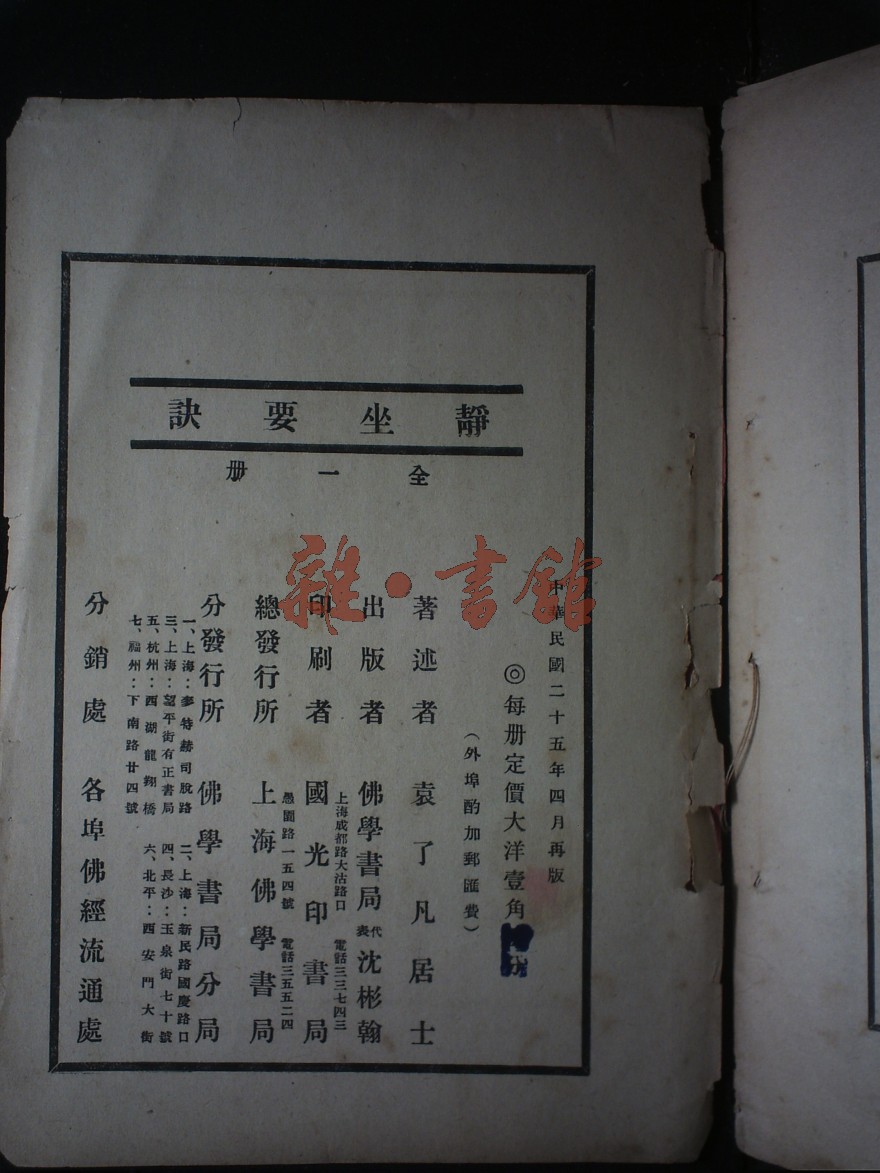 靜坐要訣
全一冊
中華民國二十五年四月再版
◎每冊定價大洋壹角
（外埠酌加郵匯費）
著述者 袁了凡居士
出版者 佛學書局代表沈彬翰
上海成都路大沽路口 電話三三七四三
印刷者 國光印書局
愚園路一五四號 電話三五五二四
總發行所 上海佛學書局
分發行所 佛學書局分局
一、上海：麥特赫司脫路 二、上海：新民路國慶路口
三、上海：望平街有正書局 四、長沙：玉泉街七十號
五、杭州：西湖龍翔橋 六、北平：西安門大街
七、福州：下南路廿四號
分銷處 各埠佛經流通處
雜·書館